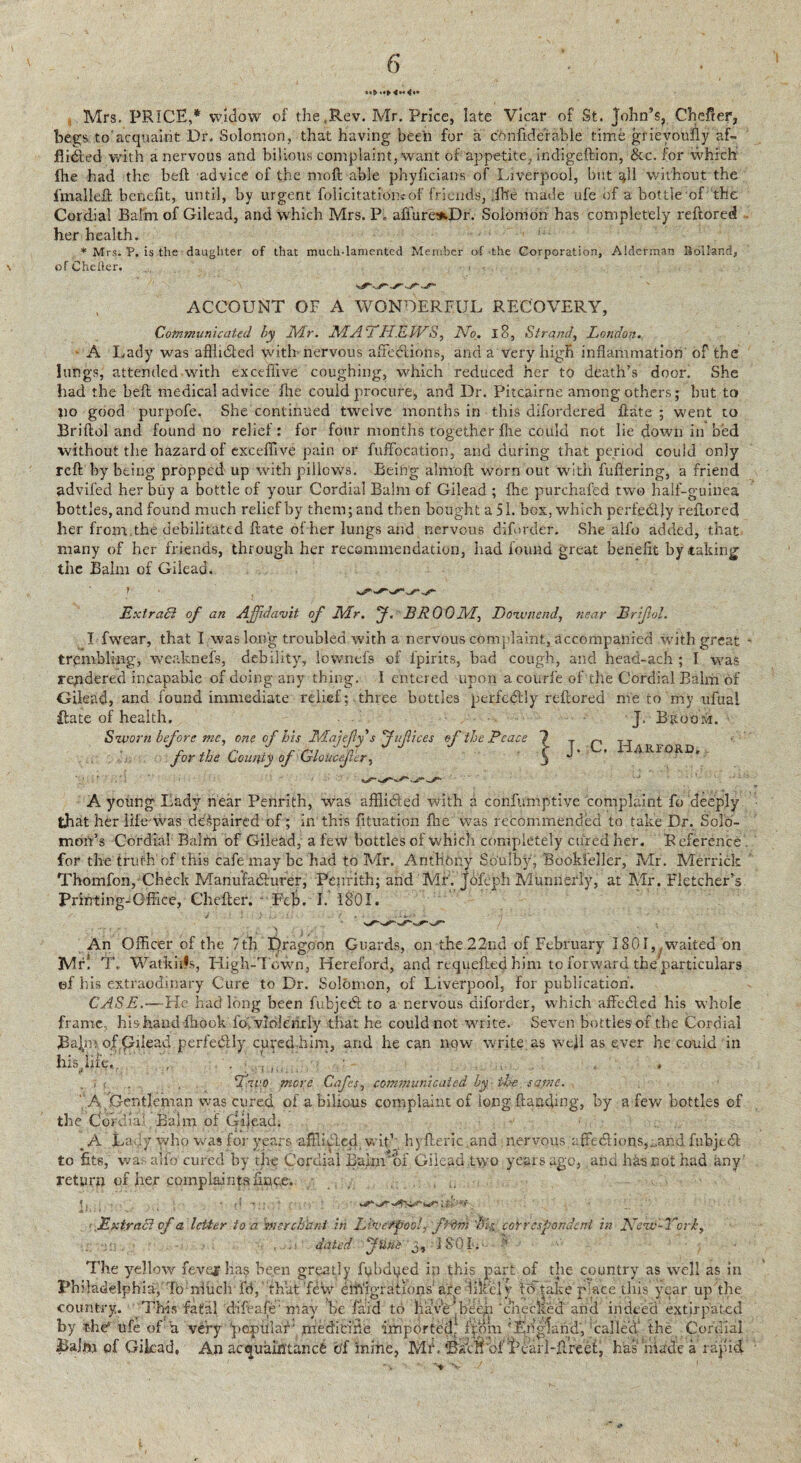 6
Mrs. PRICE,* widow of the Rev. Mr. Price, late Vicar of St. John's, Chester,
begs to acquaint Dr. Solomon, that having been for a conſiderable time grievouſly af-
flicted with a nervous and bilious complaint, want of appetite, indigeſtion, &c. for which
ſhe had the beſt advice of the moſt able phyſicians of Liverpool, but all without the
ſmalleſt benefit, until, by urgent ſolicitations of friends, ſhe made uſe of a bottle of the
Cordial Balm of Gilead, and which Mrs. P. aſſures Dr. Solomon has completely reſtored
her health.
* Mrs. P. is the daughter of that much-lamented Member of the Corporation, Alderman Bolland,
of Cheſter.
ACCOUNT OF A WONDERFUL RECOVERY,
Communicated by Mr. MATHEWS, No. 18, Strand, London.
A Lady was afflicted with nervous affections, and a very high inflammation of the
lungs, attended with exceſſive coughing, which reduced her to death's door. She
had the beſt medical advice ſhe could procure, and Dr. Pitcairne among others; but to
no good purpoſe. She continued twelve months in this diſordered ſtate; went to
Briſtol and found no relief: for four months together ſhe could not lie down in bed
without the hazard of exceſſive pain or ſuffocation, and during that period could only
reſt by being propped up with pillows. Being almoſt worn out with ſuffering, a friend
adviſed her buy a bottle of your Cordial Balm of Gilead; ſhe purchaſed two half-guinea
bottles, and found much relief by them; and then bought a 5l. box, which perfectly reſtored
her from the debilitated ſtate of her lungs and nervous diſorder. She alſo added, that
many of her friends, through her recommendation, had found great benefit by taking
the Balm of Gilead.
Extract of an Affidavit of Mr. J. BROOM, Downend, near Briſtol.
I ſwear, that I was long troubled with a nervous complaint, accompanied with great
trembling, weakneſs, debility, lowneſs of ſpirits, bad cough, and head-ach; I was
rendered incapable of doing any thing. I entered upon a courſe of the Cordial Balm of
Gilead, and found immediate relief; three bottles perfectly reſtored me to my uſual
ſtate of health. J. BROOM.
Sworn before me, one of his Majeſty's Juſtices of the Peace } J. C. HARFORD.
for the County of Glouceſter,
A young Lady near Penrith, was afflicted with a conſumptive complaint ſo deeply
that her life was deſpaired of; in this ſituation ſhe was recommended to take Dr. Solo-
mon's Cordial Balm of Gilead, a few bottles of which completely cured her. Reference
for the truth of this caſe may be had to Mr. Anthony Soulby, Bookſeller, Mr. Merrick
Thomſon, Check Manufacturer, Penrith; and Mr. Joſeph Munnerly, at Mr. Fletcher's
Printing-Office, Cheſter. Feb. I. 1801.
An Officer of the 7th Dragoon Guards, on the 22nd of February 1801, waited on
Mr. T. Watkins, High-Town, Hereford, and requeſted him to forward the particulars
of his extraodinary Cure to Dr. Solomon, of Liverpool, for publication.
CASE.—He had long been ſubject to a nervous diſorder, which affected his whole
frame, his hand ſhook ſo violently that he could not write. Seven bottles of the Cordial
Balm of Gilead perfectly cured him, and he can now write as well as ever he could in
his life.
Two more Caſes, communicated by the ſame.
A Gentleman was cured of a bilious complaint of long ſtanding, by a few bottles of
the Cordial Balm of Gilead.
A Lady who was for years afflicted with hyſteric and nervous affections, and ſubject
to fits, was alſo cured by the Cordial Balm of Gilead two years ago, and has not had any
return of her complaints ſince.
Extract of a letter to a merchant in Liverpool, from his correspondent in New-York,
dated June 3, 1801.
The yellow fever has been greatly ſubdued in this part of the country as well as in
Philadelphia, So much ſo, that few emigrations are likely to take place this year up the
country. This fatal diſeaſe may be ſaid to have been checked and indeed extirpated
by the uſe of a very popular medicine imported from England, called the Cordial
Balm of Gilead. An acquaintance of mine, Mr. Bach of Pearl-ſtreet, has made a rapid